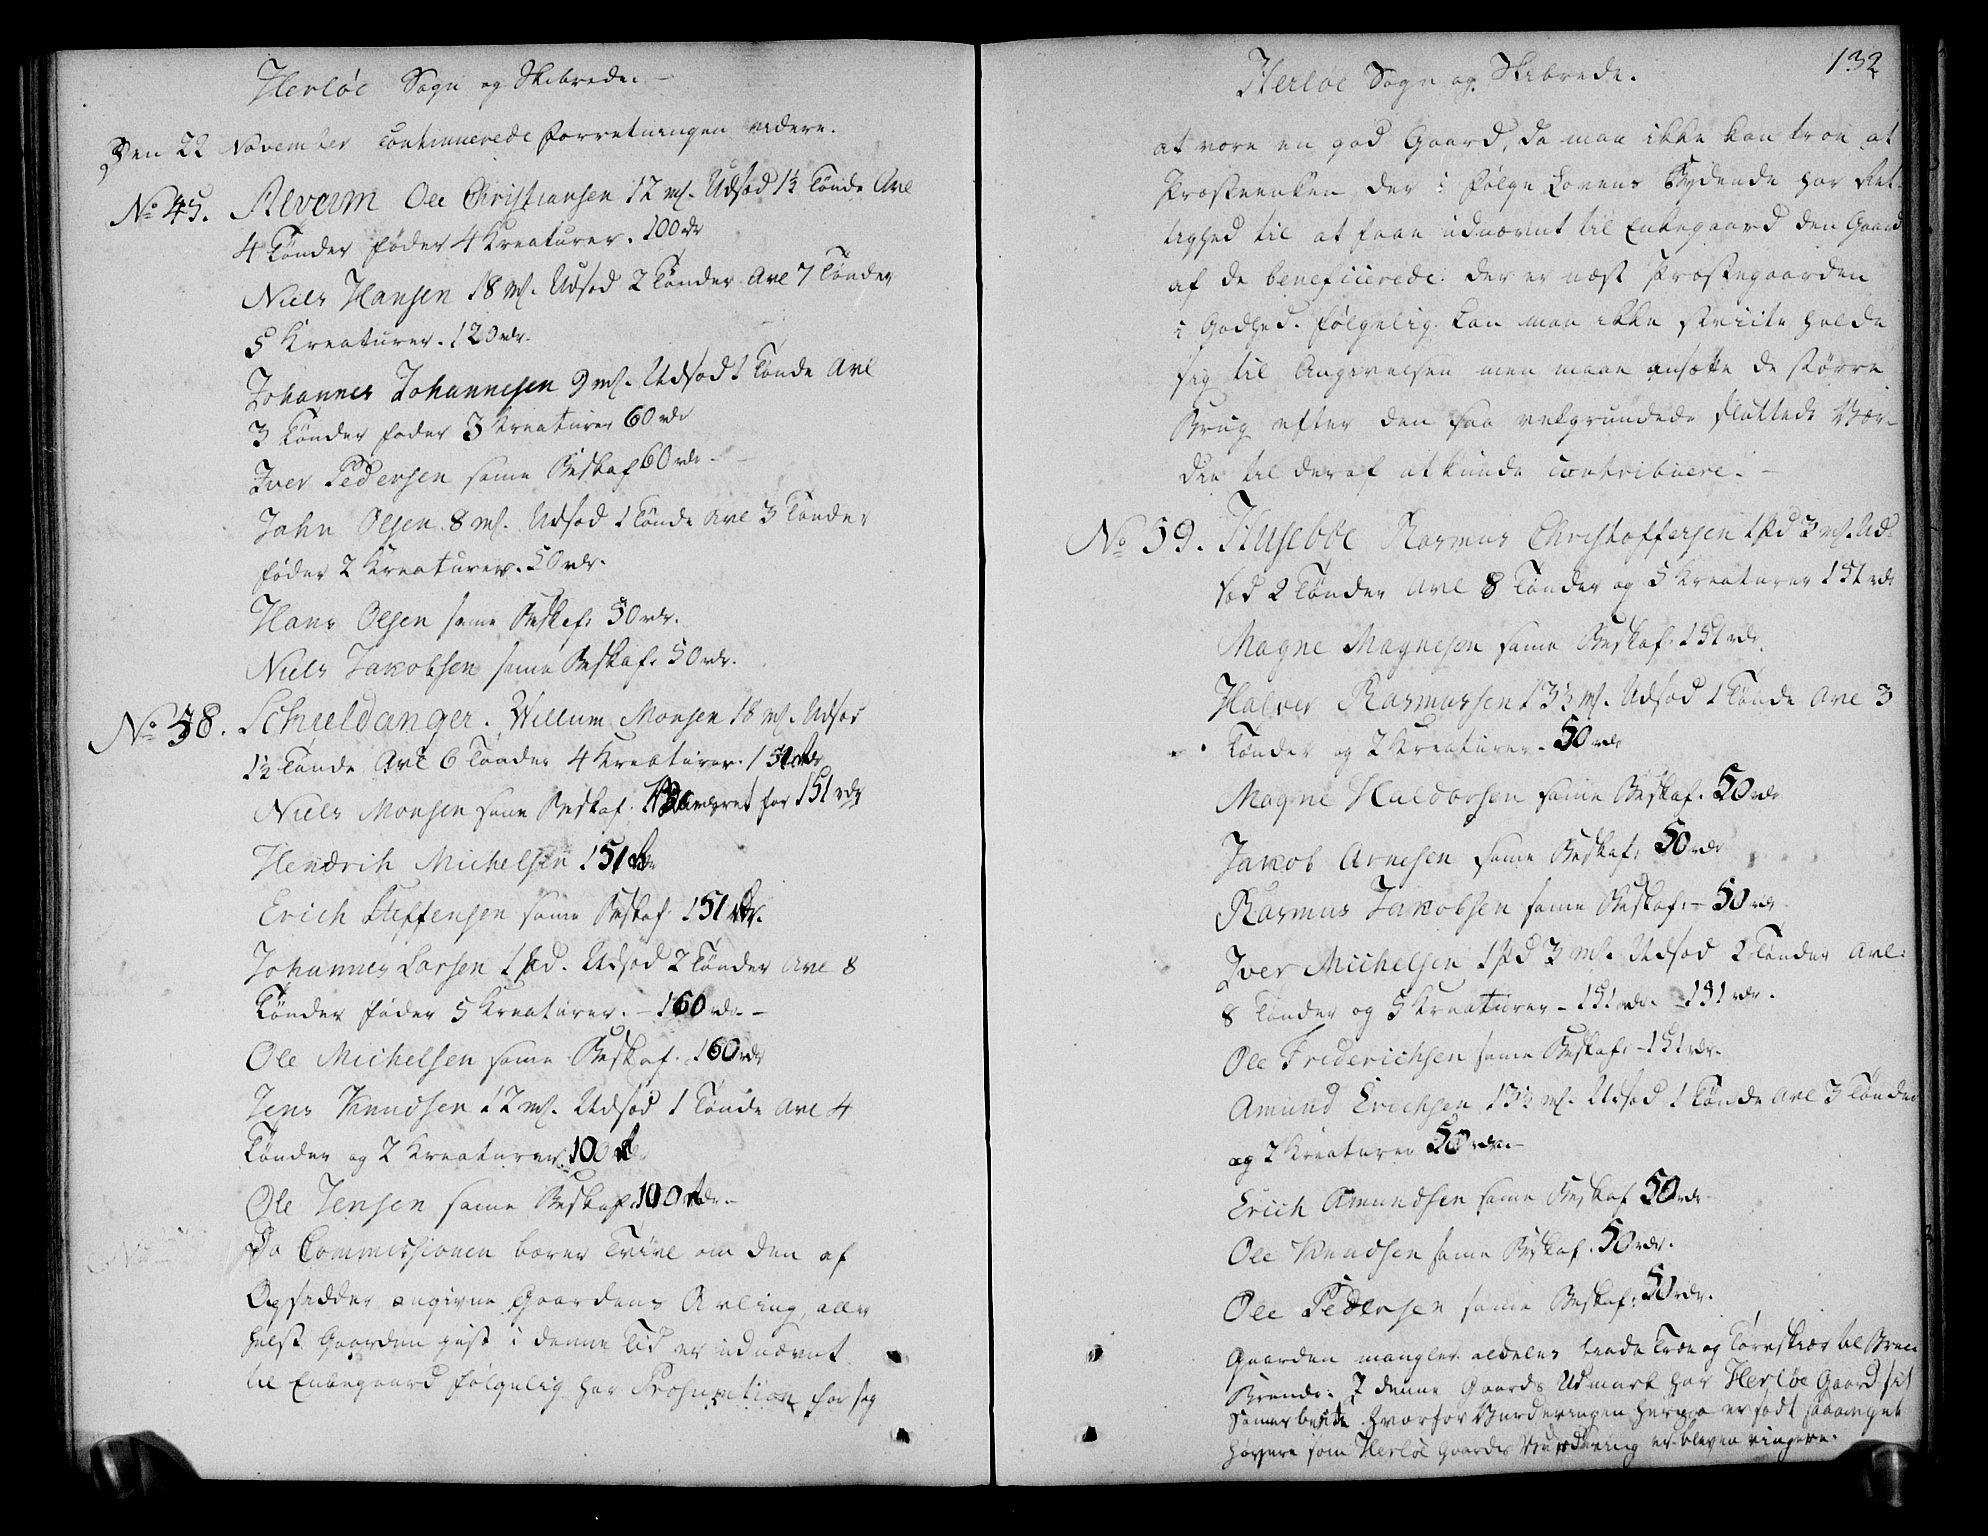 Herløe Sogn og Skibrede.
Den 22 November continuerede forretningen videre.
No 45. Alverm Ole Christiansen 12 mk. Udsæd 1½ Tønde Avl
4 Tønder føder 4 Kreaturer. 100 rdr
Niels Hansen 18 mk. Udsæd 2 Tønder Avl 7 Tønder
5 Kreaturer. 120 rdr.
Johannes Johannesen 9 mk. Udsæd 1 Tønde Avl
3 Tønder føder 3 Kreaturer 60 rdr
Iver Pedersen same Beskaf 60 rdr.
John Olsen 8 mk. Udsæd 1 Tønde Avl 3 Tønder
føder 2 Kreaturer. 50 rdr.
Hans Olsen same Beskaf: 50 rdr.
Niels Jakobsen same Beskaf: 50 rdr.
No 58. Schieldanger. Willum Monsen 18 mk. Udsæd
1½ Tønde Avl 6 Tønder 4 Kreaturer. 151 rdr
Niels Monsen same Beskaf. for 151 rdr
Hendrich Michelsen 151 rdr
Erich Steffensen same Beskaf. 151 rdr.
Johannes Larsen 1 pd. Udsæd 2 Tønder Avl 8
Tønder føder 5 Kreaturer. – 160 rdr. –
Ole Michelsen same Beskaf. 160 rdr
Jens Knudsen 12 mk. Udsæd 1 Tønde Avl 4
Tønder og 2 Kreaturer. 100 rdr
Ole Jensen same Beskaf. 100 rdr. –
Da Commissionen bærer Tvivl om den af
Opsidder angivne Gaardens Avling, aller
helst Gaarden just i denne Tid er udnævnt
til Enkegaard følgelig har Prosumtion for sig
132
Herløe Sogn og Skibrede.
at være en god Gaard, da man ikke kan troe at
Præsteenken der i følge Lovens Bydende har Ret-
tighed til at faae udnævnt til Enkegaard den Gaard
af de beneficerede der er næst Præstegaarden
i Godhed. følgelig kan man ikke stricte holde
sig til Angivelsen men maae ansætte de større
Brug efter den saa velgrundede sluttede Vær-
die til deraf at kunde contribuere. –
No 59. Husebøe Rasmus Christoffersen 1 pd 3 mk. Ud-
sæd 2 Tønder Avl 8 Tønder og 5 Kreaturer 151 rdr
Magne Magnesen same Beskaf. 151 rdr.
Halvor Rasmussen 13½ mk. Udsæd 1 Tønde Avl 3
Tønder og 2 Kreaturer. 50 rdr
Magne Haldorsen same Beskaf. 50 rdr
Jakob Arnesen same Beskaf: 50 rdr
Rasmus Jakobsen same Beskaf: – 50 rdr
Iver Michelsen 1 pd 3 mk. Udsæd 2 Tønder Avl
8 Tønder og 5 Kreaturer – 151 rdr. – 151 rdr.
Ole Friderichsen same Beskaf: – 151 rdr.
Amund Erichsen 13½ mk. Udsæd 1 Tønde Avl 3 Tønder
og 2 Kreaturer 50 rdr. –
Erich Amundsen same Beskaf 50 rdr.
Ole Knudsen same Beskaf. 50 rdr.
Ole Pedersen same Beskaf: 50 rdr.
Gaarden mangler aldeles baade Træe og Tørvskiær til
Brænde. I denne Gaards Udmark har Herløe Gaard sit
Sommerbeite hvorfor Vurderingen herpaa er sadt saameget
høyere som Herløe Gaards Vurdering er bleven ringere.